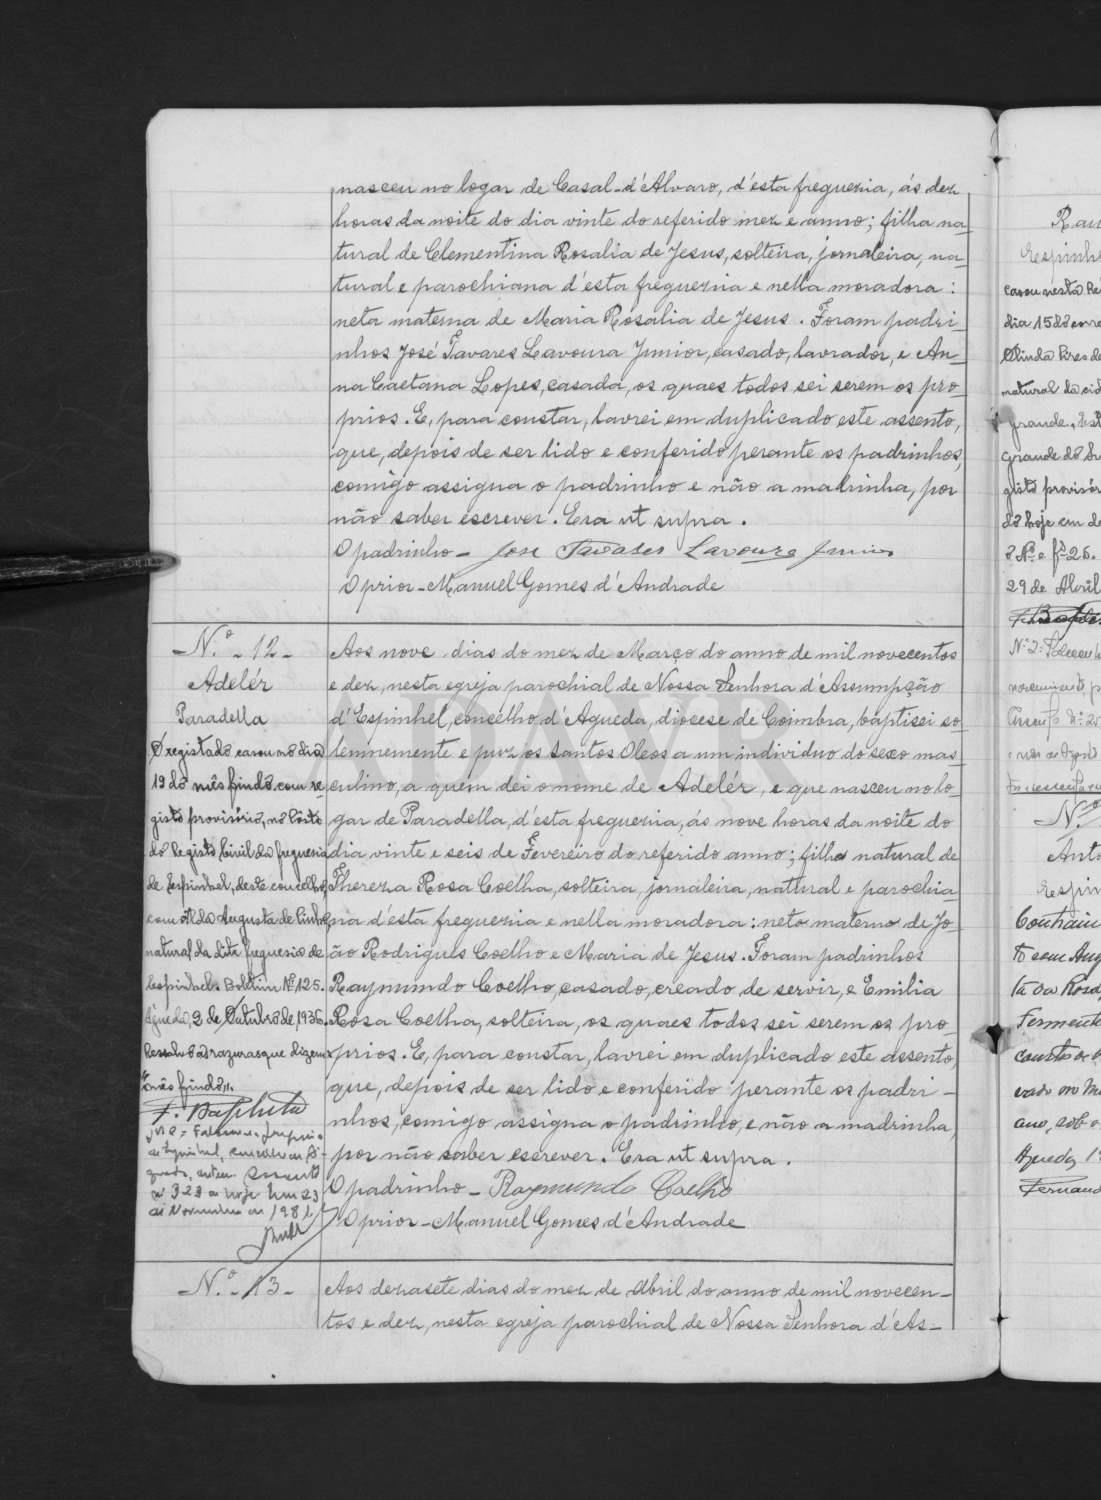 nasceu no logar de Casal-d'Alvaro, d'esta freguezia, ás dez
horas da noite do dia vinte do referido mez e anno; filha na-
tural de Clementina Rosalia de Jesus, solteira, jornaleira, na-
tural e parochiana d'esta freguezia e nella moradora:
neta materna de Maria Rosalia de Jesus. Foram padri-
nhos José Tavares Lavoura Junior, casado, lavrador, e An-
na Caetana Lopes, casada, os quaes todos sei serem os pro-
prios. E, para constar, lavrei em duplicado este assento,
que, depois de ser lido e conferido perante os padrinhos,
comigo assigna o padrinho e não a madrinha, por
não saber escrever. Era ut supra.
O padrinho - José Tavares Lavoura Junior
O prior - Manuel Gomes d'Andrade
N.º - 12 -
Adelér
Paradella
O registado casou no dia
19 do mês findo, com re-
gisto provisório, no Posto
do Registo Civil da freguesia
de Espinhel, deste concelho,
com Alda Augusta de Pinho,
natural da dita freguesia de
Espinhel. Boletim Nº 125.
Águeda, 2 de Outubro de 1936.
Ressalvo as rasuras que dizem
"mês findo".
F. Baptista
Nº 2 = Faleceu na freguesia
de Espinhel, concelho de Á-
gueda, assento
nº 323 de hoje. Em 23
de Novembro de 1981
Aos nove dias do mez de Março do anno de mil novecentos
e dez, nesta egreja parochial de Nossa Senhora d'Assumpção
d'Espinhel, concelho d'Agueda, diocese de Coimbra, baptisei so-
lemnemente e puz os Santos Oleos a um individuo do sexo mas-
culino, a quem dei o nome de Adelér, e que nasceu no lo-
gar de Paradella, d'esta freguezia, ás nove horas da noite do
dia vinte e seis de Fevereiro do referido anno; filho natural de
Thereza Rosa Coelha, solteira, jornaleira, natural e parochia-
na d'esta freguezia e nella moradora: neto materno de Jo-
ão Rodrigues Coelho e Maria de Jesus. Foram padrinhos
Raymundo Coelho, casado, creado de servir, e Emilia
Rosa Coelha, solteira, os quaes todos sei serem os pro-
prios. E, para constar, lavrei em duplicado este assento,
que, depois de ser lido e conferido perante os padri-
nhos, comigo assigna o padrinho, e não a madrinha,
por não saber escrever. Era ut supra.
O padrinho - Raymundo Coelho
O prior - Manuel Gomes d'Andrade
N.º - 13 -
Aos dezasete dias do mez de Abril do anno de mil novecen-
tos e dez, nesta egreja parochial de Nossa Senhora d'As-
DAVR
casou nesta
dia 15 do
natural da
grande,
Grande do
do hoje em
29 de Abril
N.º
Espin
to com
Fermente
ano, sob o
Agueda,
Fernand